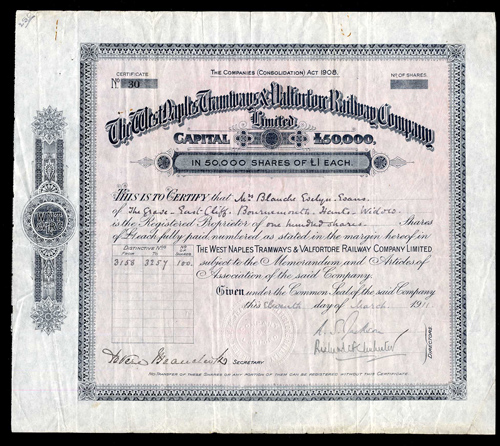 CERTIFICATE
Nº 30
THE COMPANIES (CONSOLIDATION) ACT 1908.
Nº OF SHARES
The West Naples Tramways & Valfortore Railway Company
Limited.
CAPITAL £50,000,
IN 50,000 SHARES OF £1 EACH.
THIS IS TO CERTIFY that Mrs Blanche Evelyn Evans
of The Grave East Cliff, Bournemouth, Hants, Widow
is the Registered Proprietor of one hundred shares Shares
of £1 each fully paid numbered as stated in the margin hereof in
THE WEST NAPLES TRAMWAYS & VALFORTORE RAILWAY COMPANY LIMITED
subject to the Memorandum and Articles of
Association of the said Company.
DISTINCTIVE Nºs
FROM TO Nº OF SHARES
3158 3257 100
Given under the Common Seal of the said Company
this day of March 1911
DIRECTORS
SECRETARY
NO TRANSFER OF THESE SHARES OR ANY PORTION OF THEM CAN BE REGISTERED WITHOUT THIS CERTIFICATE.